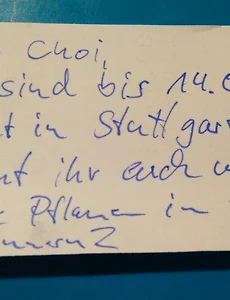 Choi,
sind bis 14.
t in Stuttgar
nt ihr auch
Pflanzen in
mmern?